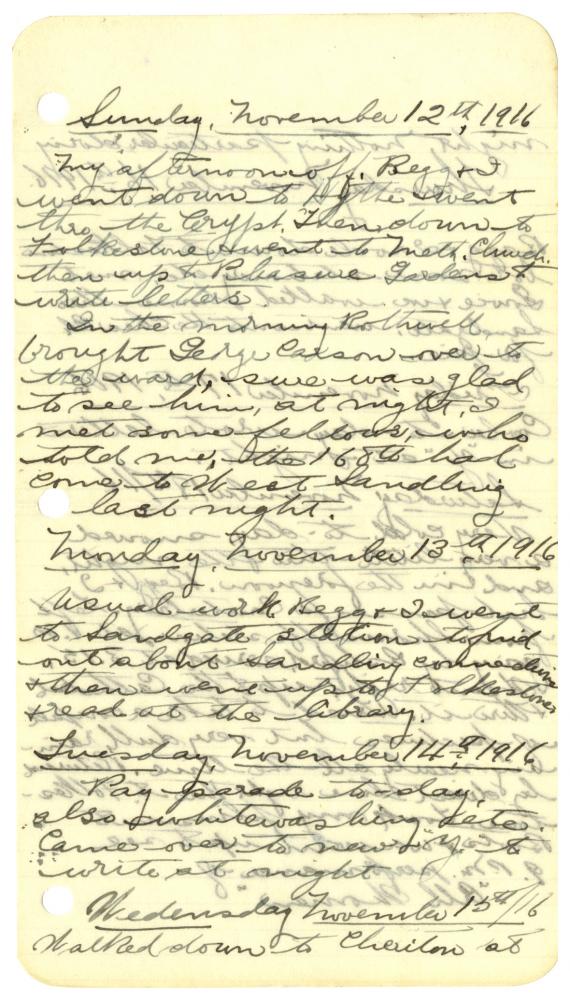 Sunday, November 12th, 1916
My afternoon off. Begg & I
went down to Hythe & went
thro the Crypt. Then down to
Folkestone & went to Meth. Church.
then up to Pleasure Gardens to
write letters
In the morning Rothwell
brought George Carson over to
the ward, sure was glad
to see him, at night, I
met some fellows, who
told me, the 168th had
come to West Sandling
last night.
Monday, November 13th 1916
Usual work Begg & I went
to Sandgate station to find
out about Sandling connections
& then went up to Folkestone
& read at the library.
Tuesday, November 14th, 1916
Pay parade to-day,
also whitewashing etc.
Came over to new "Y" to
write at night
Wedensday November 15th/16
Walked down to Cheriton at